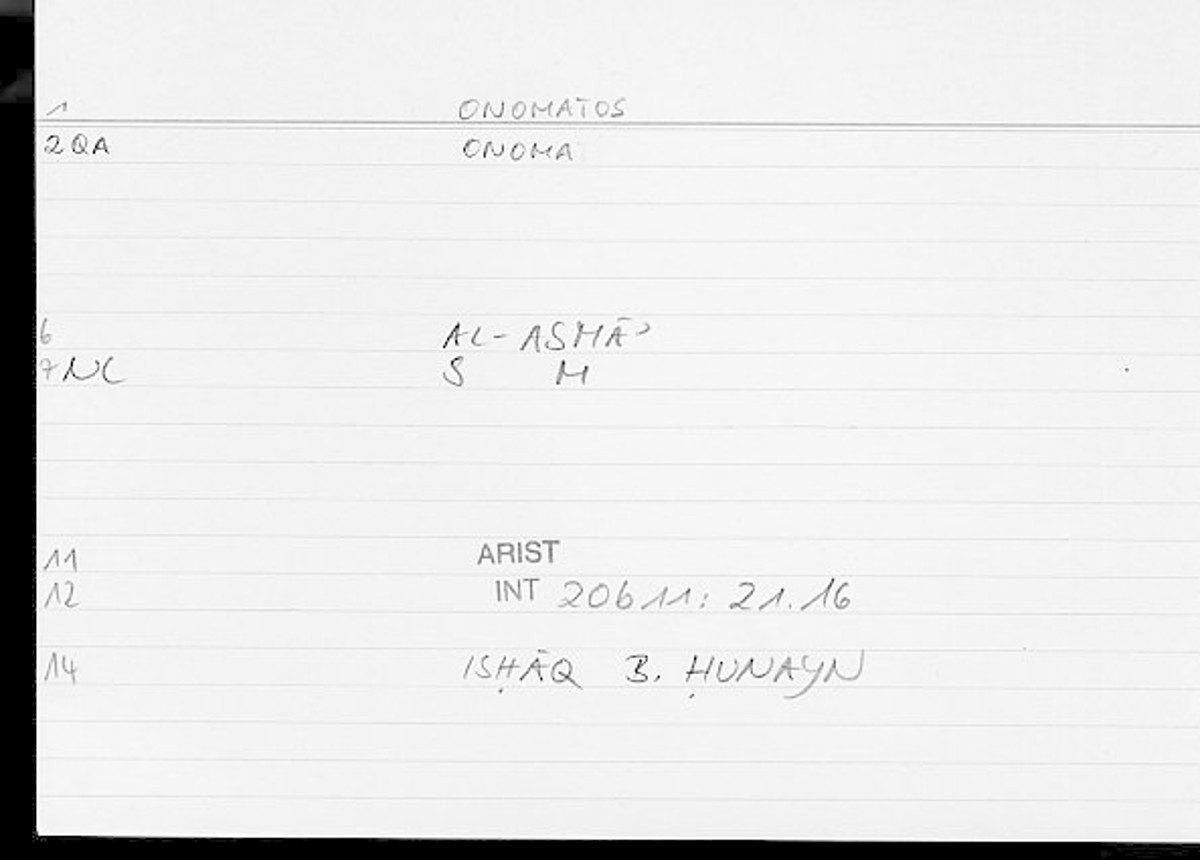 1 ONOMATOS
2 QA ONOMA
6 AL-ASMĀʾ
7 NC S M
11 ARIST
12 INT 20b11: 21.16
14 ISḤĀQ B. ḤUNAYN